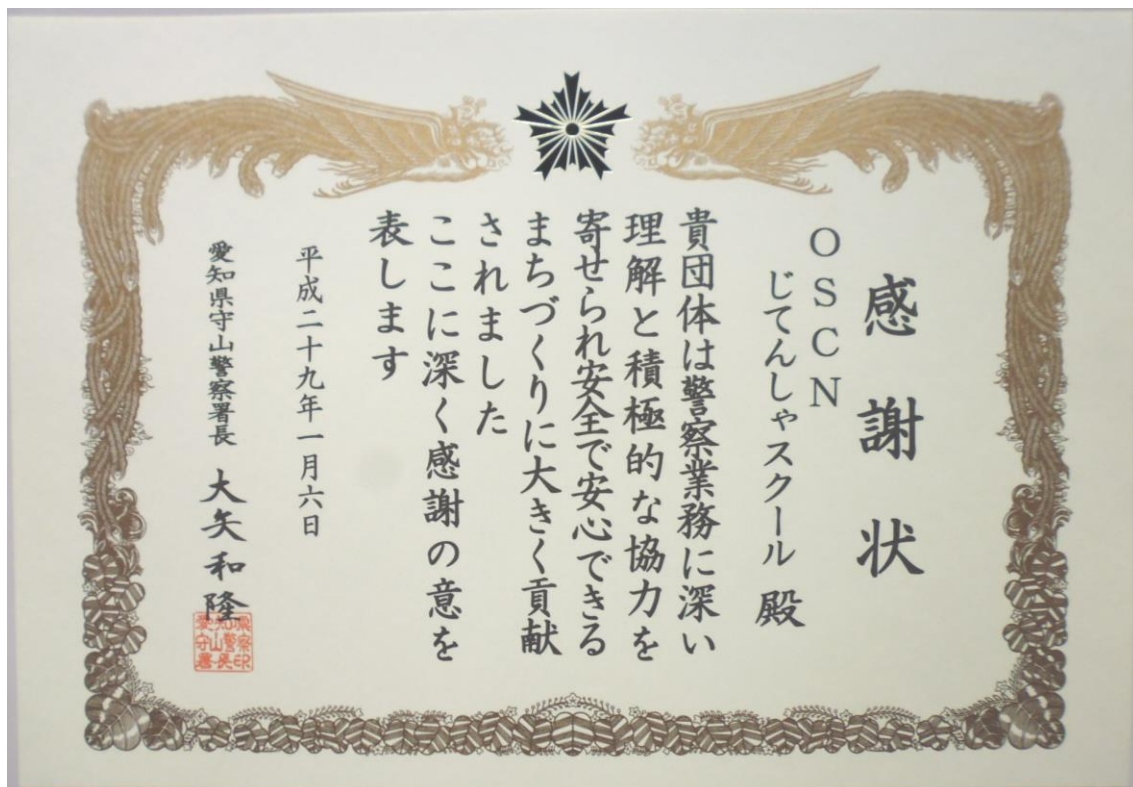 感謝状
OSCN
じてんしゃスクール 殿
貴団体は警察業務に深い
理解と積極的な協力を
寄せられ安全で安心できる
まちづくりに大きく貢献
されました
ここに深く感謝の意を
表します
平成二十九年一月六日
愛知県守山警察署長 大矢和隆